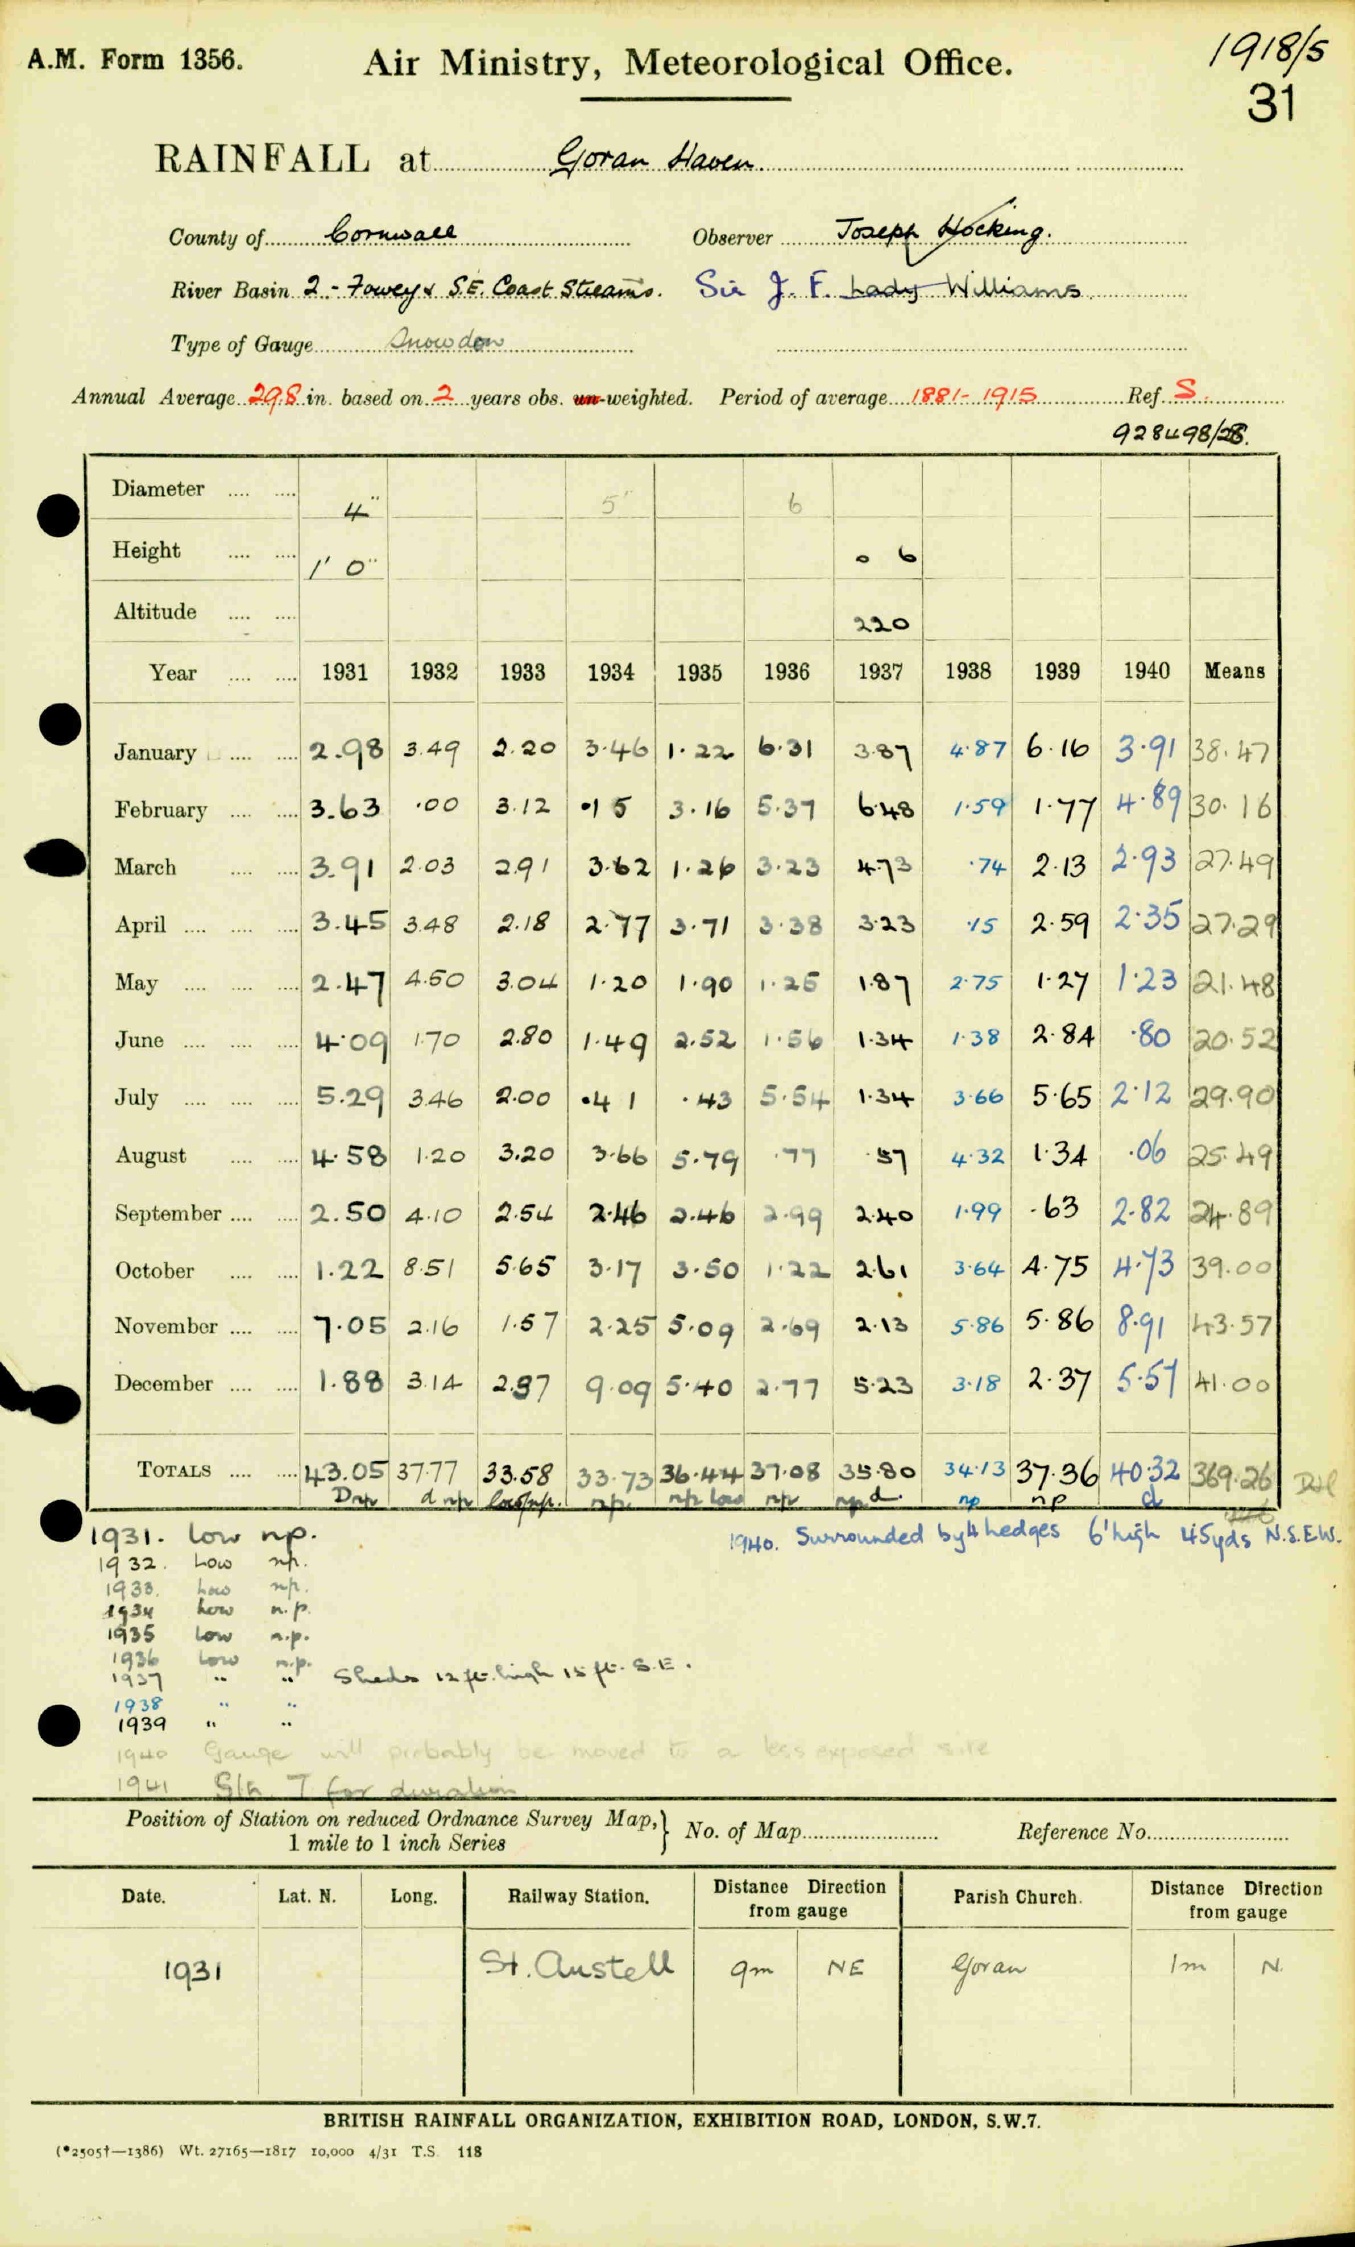 A.M. Form 1356.
Air Ministry, Meteorological Office.
1918/5
31
RAINFALL at Goran Haven.
County of Cornwall Observer Joseph Hocking.
River Basin 2 - Fowey & S.E. Coast Streams. Sir J. F. Lady Williams
Type of Gauge Snowdon
Annual Average 29.8 in. based on 2 years obs. un-weighted. Period of average 1881-1915 Ref. S.
928498/28.
Diameter 4" 5" 6
Height 1' 0" 0 6
Altitude 220
Year 1931 1932 1933 1934 1935 1936 1937 1938 1939 1940 Means
January 2.98 3.49 2.20 3.46 1.22 6.31 3.87 4.87 6.16 3.91 38.47
February 3.63 .00 3.12 .15 3.16 5.37 6.48 1.59 1.77 4.89 30.16
March 3.91 2.03 2.91 3.62 1.26 3.23 4.73 .74 2.13 2.93 27.49
April 3.45 3.48 2.18 2.77 3.71 3.38 3.23 .15 2.59 2.35 27.29
May 2.47 4.50 3.04 1.20 1.90 1.25 1.87 2.75 1.27 1.23 21.48
June 4.09 1.70 2.80 1.49 2.52 1.56 1.34 1.38 2.84 .80 20.52
July 5.29 3.46 2.00 .41 .43 5.54 1.34 3.66 5.65 2.12 29.90
August 4.58 1.20 3.20 3.66 5.79 .77 .57 4.32 1.34 .06 25.49
September 2.50 4.10 2.54 2.46 2.46 2.99 2.40 1.99 .63 2.82 24.89
October 1.22 8.51 5.65 3.17 3.50 1.22 2.61 3.64 4.75 4.73 39.00
November 7.05 2.16 1.57 2.25 5.09 2.69 2.13 5.86 5.86 8.91 43.57
December 1.88 3.14 2.37 9.09 5.40 2.77 5.23 3.18 2.37 5.57 41.00
TOTALS 43.05 37.77 33.58 33.73 36.44 37.08 35.80 34.13 37.36 40.32 369.26
D np d np low/np. np. np low np np d. np np d
1931. Low np. 1940. Surrounded by 4 hedges 6' high 45yds N.S.E.W.
1932. Low np.
1933. Low np.
1934 Low n.p.
1935 Low n.p.
1936 Low n.p.
1937 " " Sheds 12 ft. high 15 ft. S.E.
1938 " "
1939 " "
1940 Gauge will probably be moved to a less exposed site
1941 T for duration
Position of Station on reduced Ordnance Survey Map, 1 mile to 1 inch Series } No. of Map Reference No.
Date. Lat. N. Long. Railway Station. Distance Direction from gauge Parish Church. Distance Direction from gauge
1931 St. Austell 9m NE Goran 1m N.
BRITISH RAINFALL ORGANIZATION, EXHIBITION ROAD, LONDON, S.W.7.
(*2505†—1386) Wt. 27165—1817 10,000 4/31 T.S. 118